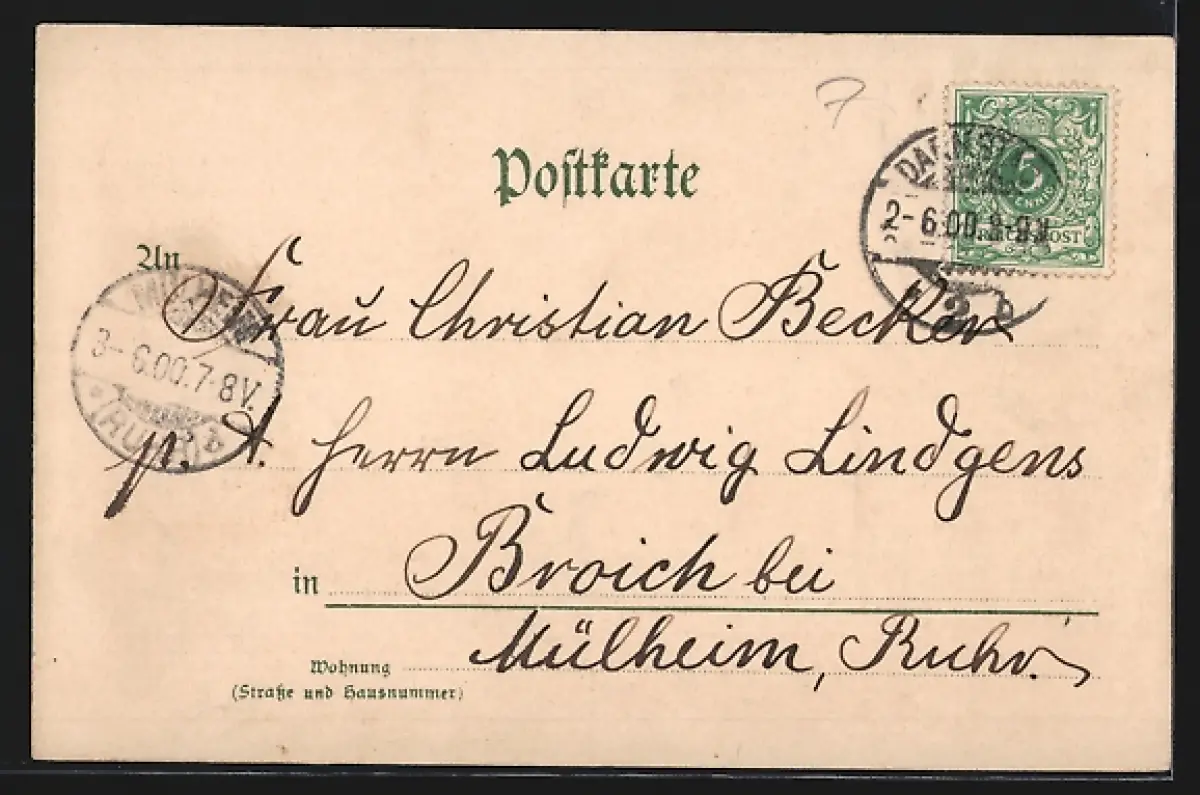 7
Postkarte
5
PFENNIG
REICHSPOST
DARMST
2-6.00.8-9V
2 b
An
Frau Christian Becker
MÜLHEIM
3-6.00.7-8V.
* (RUHR) b
p. A. Herrn Ludwig Lindgens
in Broich bei
Mülheim, Ruhr.
Wohnung
(Straße und Hausnummer)